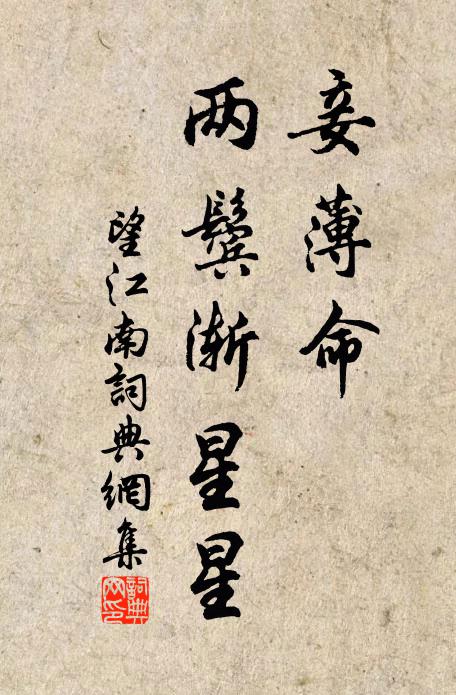 妾薄命
两鬓渐星星
望江南詞典網集
詞典
网印